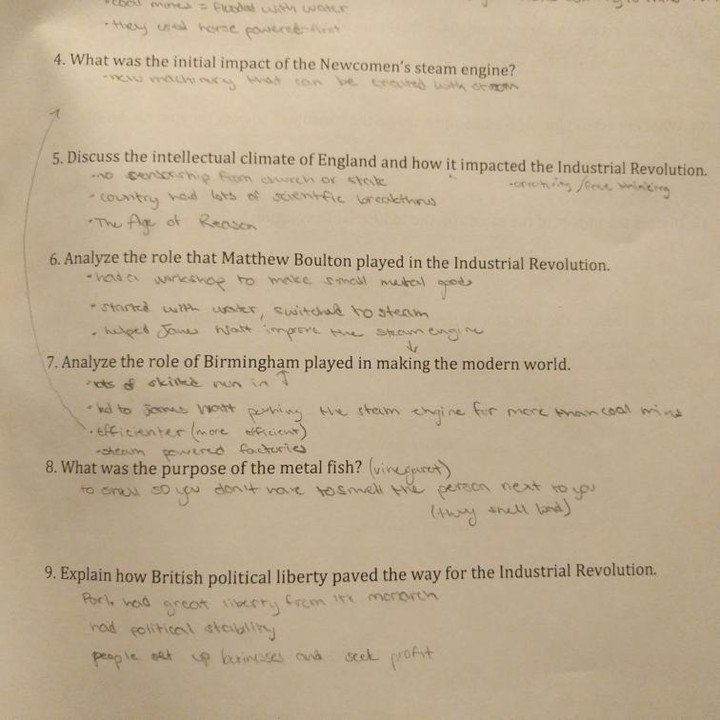 • coal mines = flooded with water
• they used horse powered first
4. What was the initial impact of the Newcomen's steam engine?
- new machinery that can be created with steam
5. Discuss the intellectual climate of England and how it impacted the Industrial Revolution.
- no sensorship from church or state
- creativity / free thinking
• country had lots of scientific breakthrus
• The Age of Reason
6. Analyze the role that Matthew Boulton played in the Industrial Revolution.
• had a workshop to make small metal goods
• started with water, switched to steam
• helped James Watt improve the steam engine
7. Analyze the role of Birmingham played in making the modern world.
- lots of skilled men in ↑
• led to James Watt pushing the steam engine for more than coal mines
• Efficienter (more efficient)
- steam powered factories
8. What was the purpose of the metal fish? (vinegaret)
to smell so you don't have to smell the person next to you
(they smell bad)
9. Explain how British political liberty paved the way for the Industrial Revolution.
Parl. had great liberty from monarch
had political stability
people set up businesses and seek profit